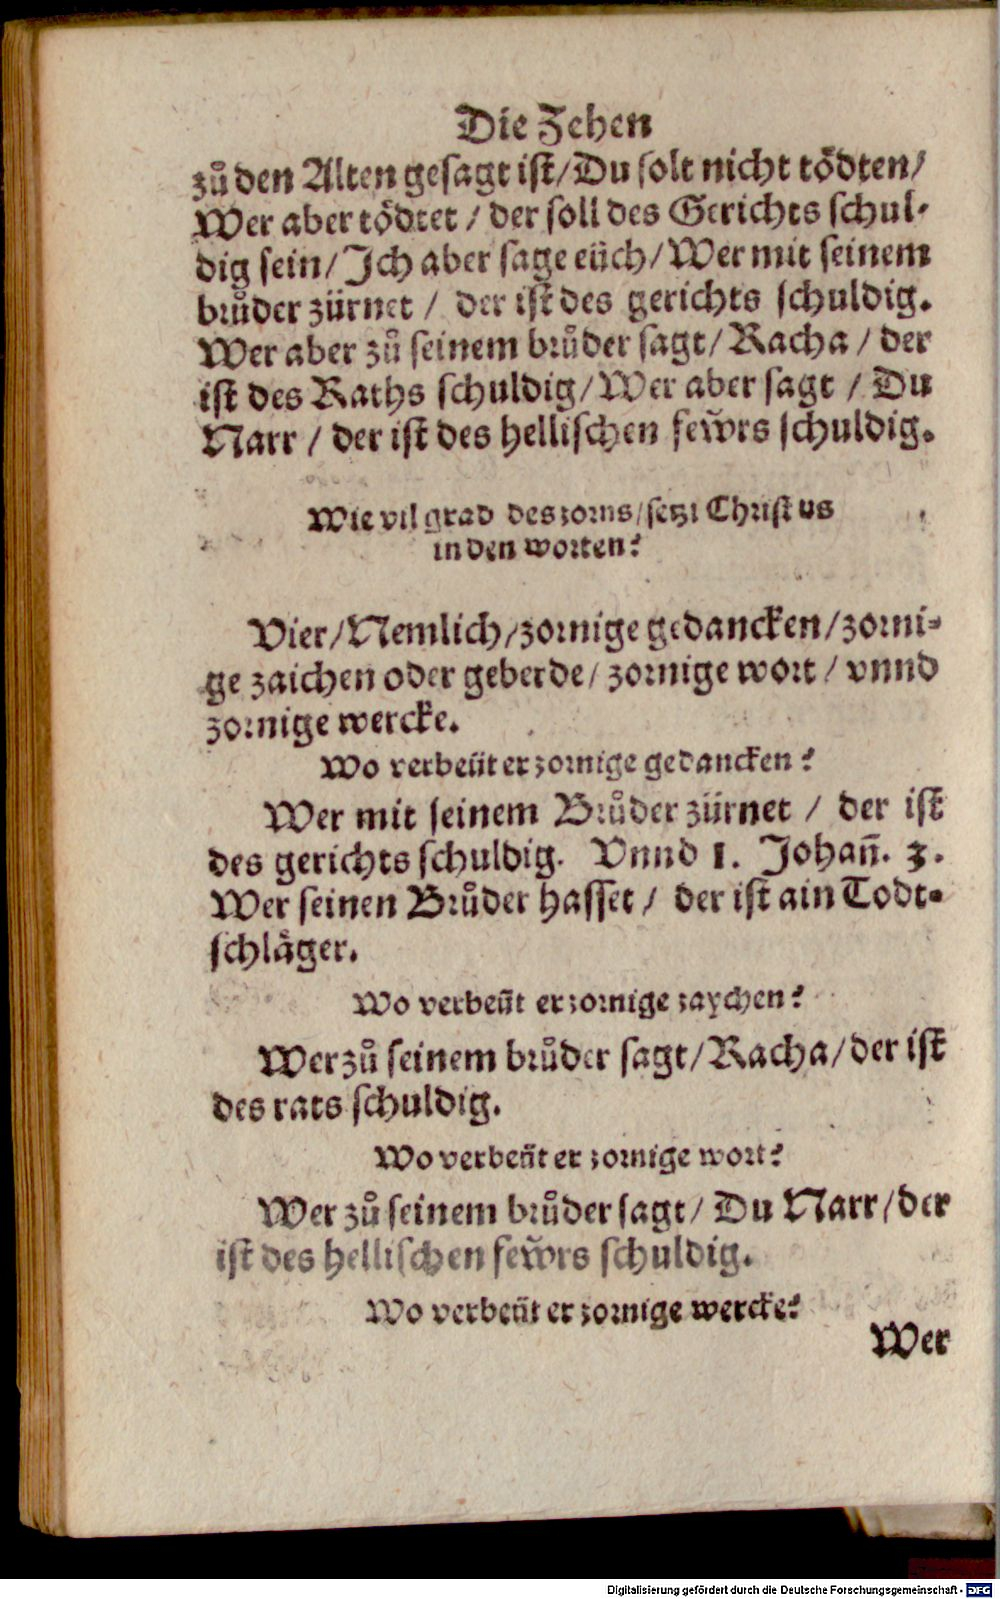 Die Zehen
zů den Alten gesagt ist/Du solt nicht tödten/
Wer aber tödtet / der soll des Gerichts schul-
dig sein/Ich aber sage eüch/Wer mit seinem
brůder zürnet / der ist des gerichts schuldig.
Wer aber zů seinem brůder sagt/Racha / der
ist des Raths schuldig/Wer aber sagt / Du
Narr / der ist des hellischen fewrs schuldig.
Wie vil grad des zorns/setzt Christus
in den worten?
Vier/Nemlich/zornige gedancken/zorni-
ge zaichen oder geberde/ zornige wort / vnnd
zornige wercke.
Wo verbeüt er zornige gedancken?
Wer mit seinem Brůder zürnet / der ist
des gerichts schuldig. Vnnd 1. Johañ. 3.
Wer seinen Brůder hasset / der ist ain Todt-
schläger.
Wo verbeüt er zornige zaychen?
Wer zů seinem brůder sagt/Racha/der ist
des rats schuldig.
Wo verbeüt er zornige wort?
Wer zů seinem brůder sagt/ Du Narr/der
ist des hellischen fewrs schuldig.
Wo verbeüt er zornige wercke?
Wer
Digitalisierung gefördert durch die Deutsche Forschungsgemeinschaft - DFG